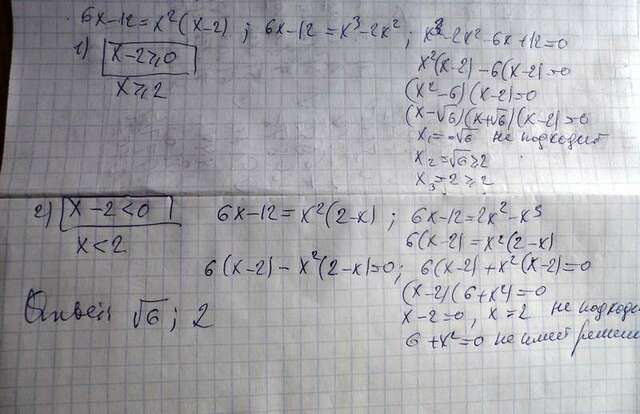 6x-12=x²(x-2) ; 6x-12=x³-2x² ; x³-2x²-6x+12=0
1) x-2⩾0
x⩾2
x²(x-2)-6(x-2)=0
(x²-6)(x-2)=0
(x-√6)(x+√6)(x-2)=0
x₁=-√6 не подходит
x₂=√6⩾2
x₃=2⩾2
2) x-2<0
x<2
6x-12=x²(2-x) ; 6x-12=2x²-x³
6(x-2)=x²(2-x)
6(x-2)-x²(2-x)=0; 6(x-2)+x²(x-2)=0
(x-2)(6+x²)=0
x-2=0, x=2 не подходи
6+x²=0 не имеет решени
Ответ √6; 2